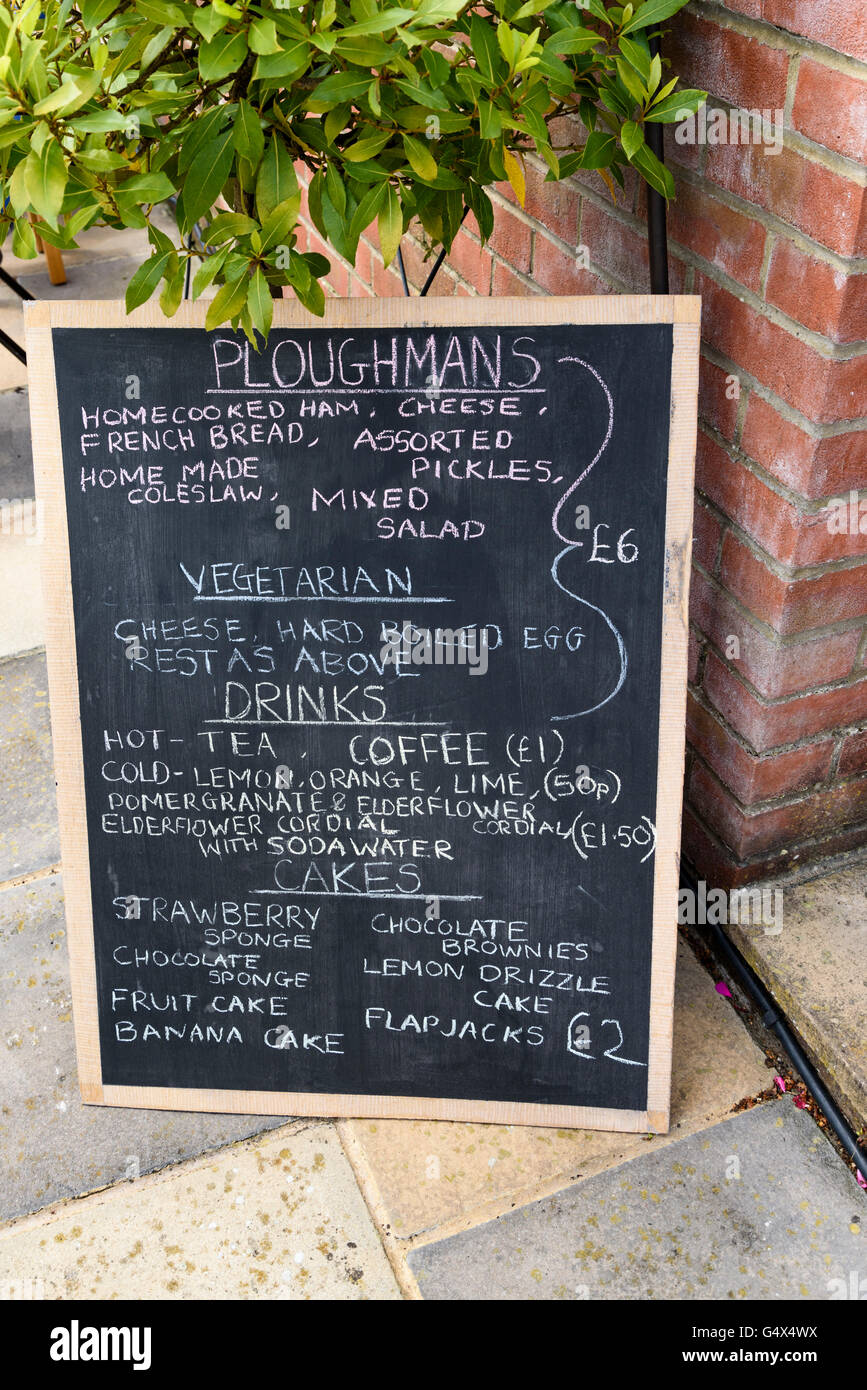 PLOUGHMANS
HOMECOOKED HAM, CHEESE,
FRENCH BREAD, ASSORTED
HOME MADE PICKLES,
COLESLAW, MIXED
SALAD
£6
VEGETARIAN
CHEESE, HARD BOILED EGG
REST AS ABOVE
DRINKS
HOT- TEA, COFFEE (£1)
COLD- LEMON, ORANGE, LIME, (50p)
POMERGRANATE & ELDERFLOWER
ELDERFLOWER CORDIAL CORDIAL (£1.50)
WITH SODA WATER
CAKES
STRAWBERRY
SPONGE
CHOCOLATE
SPONGE
FRUIT CAKE
BANANA CAKE
CHOCOLATE
BROWNIES
LEMON DRIZZLE
CAKE
FLAPJACKS £2
alamy
alamy
Image ID: G4X4WX
www.alamy.com